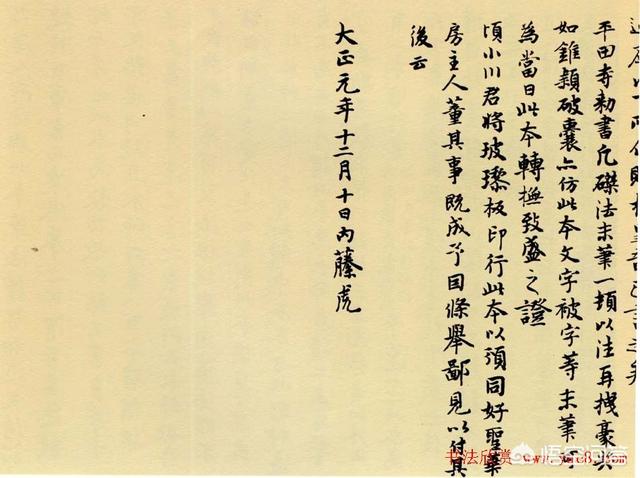 平田寺勅書凡磔法末筆一頓以注再拽豪尖
如錐穎破囊亦仿此本文字被字等末筆可
為當日此本轉撫致盛之證
頃小川君將玻瓈板印行此本以頒同好聖華
房主人董其事既成予因條舉鄙見以付其
後云
大正元年十二月十日內藤虎
书法欣赏 www.yac8.com
悟空问答